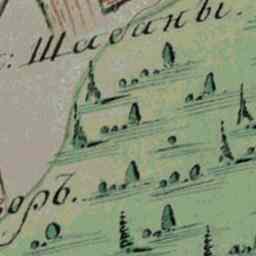 : Шабаны.
оръ.